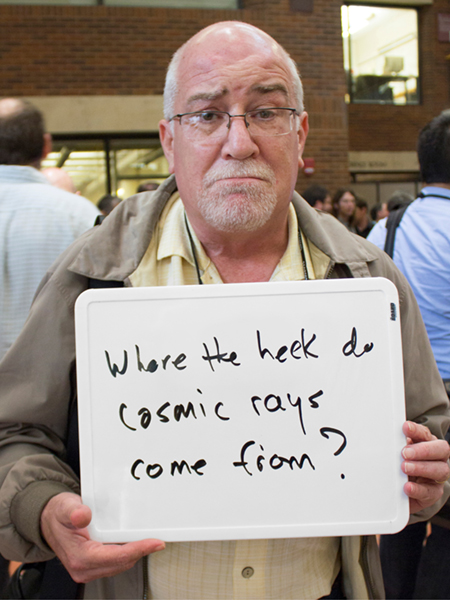 Where the heck do
cosmic rays
come from?